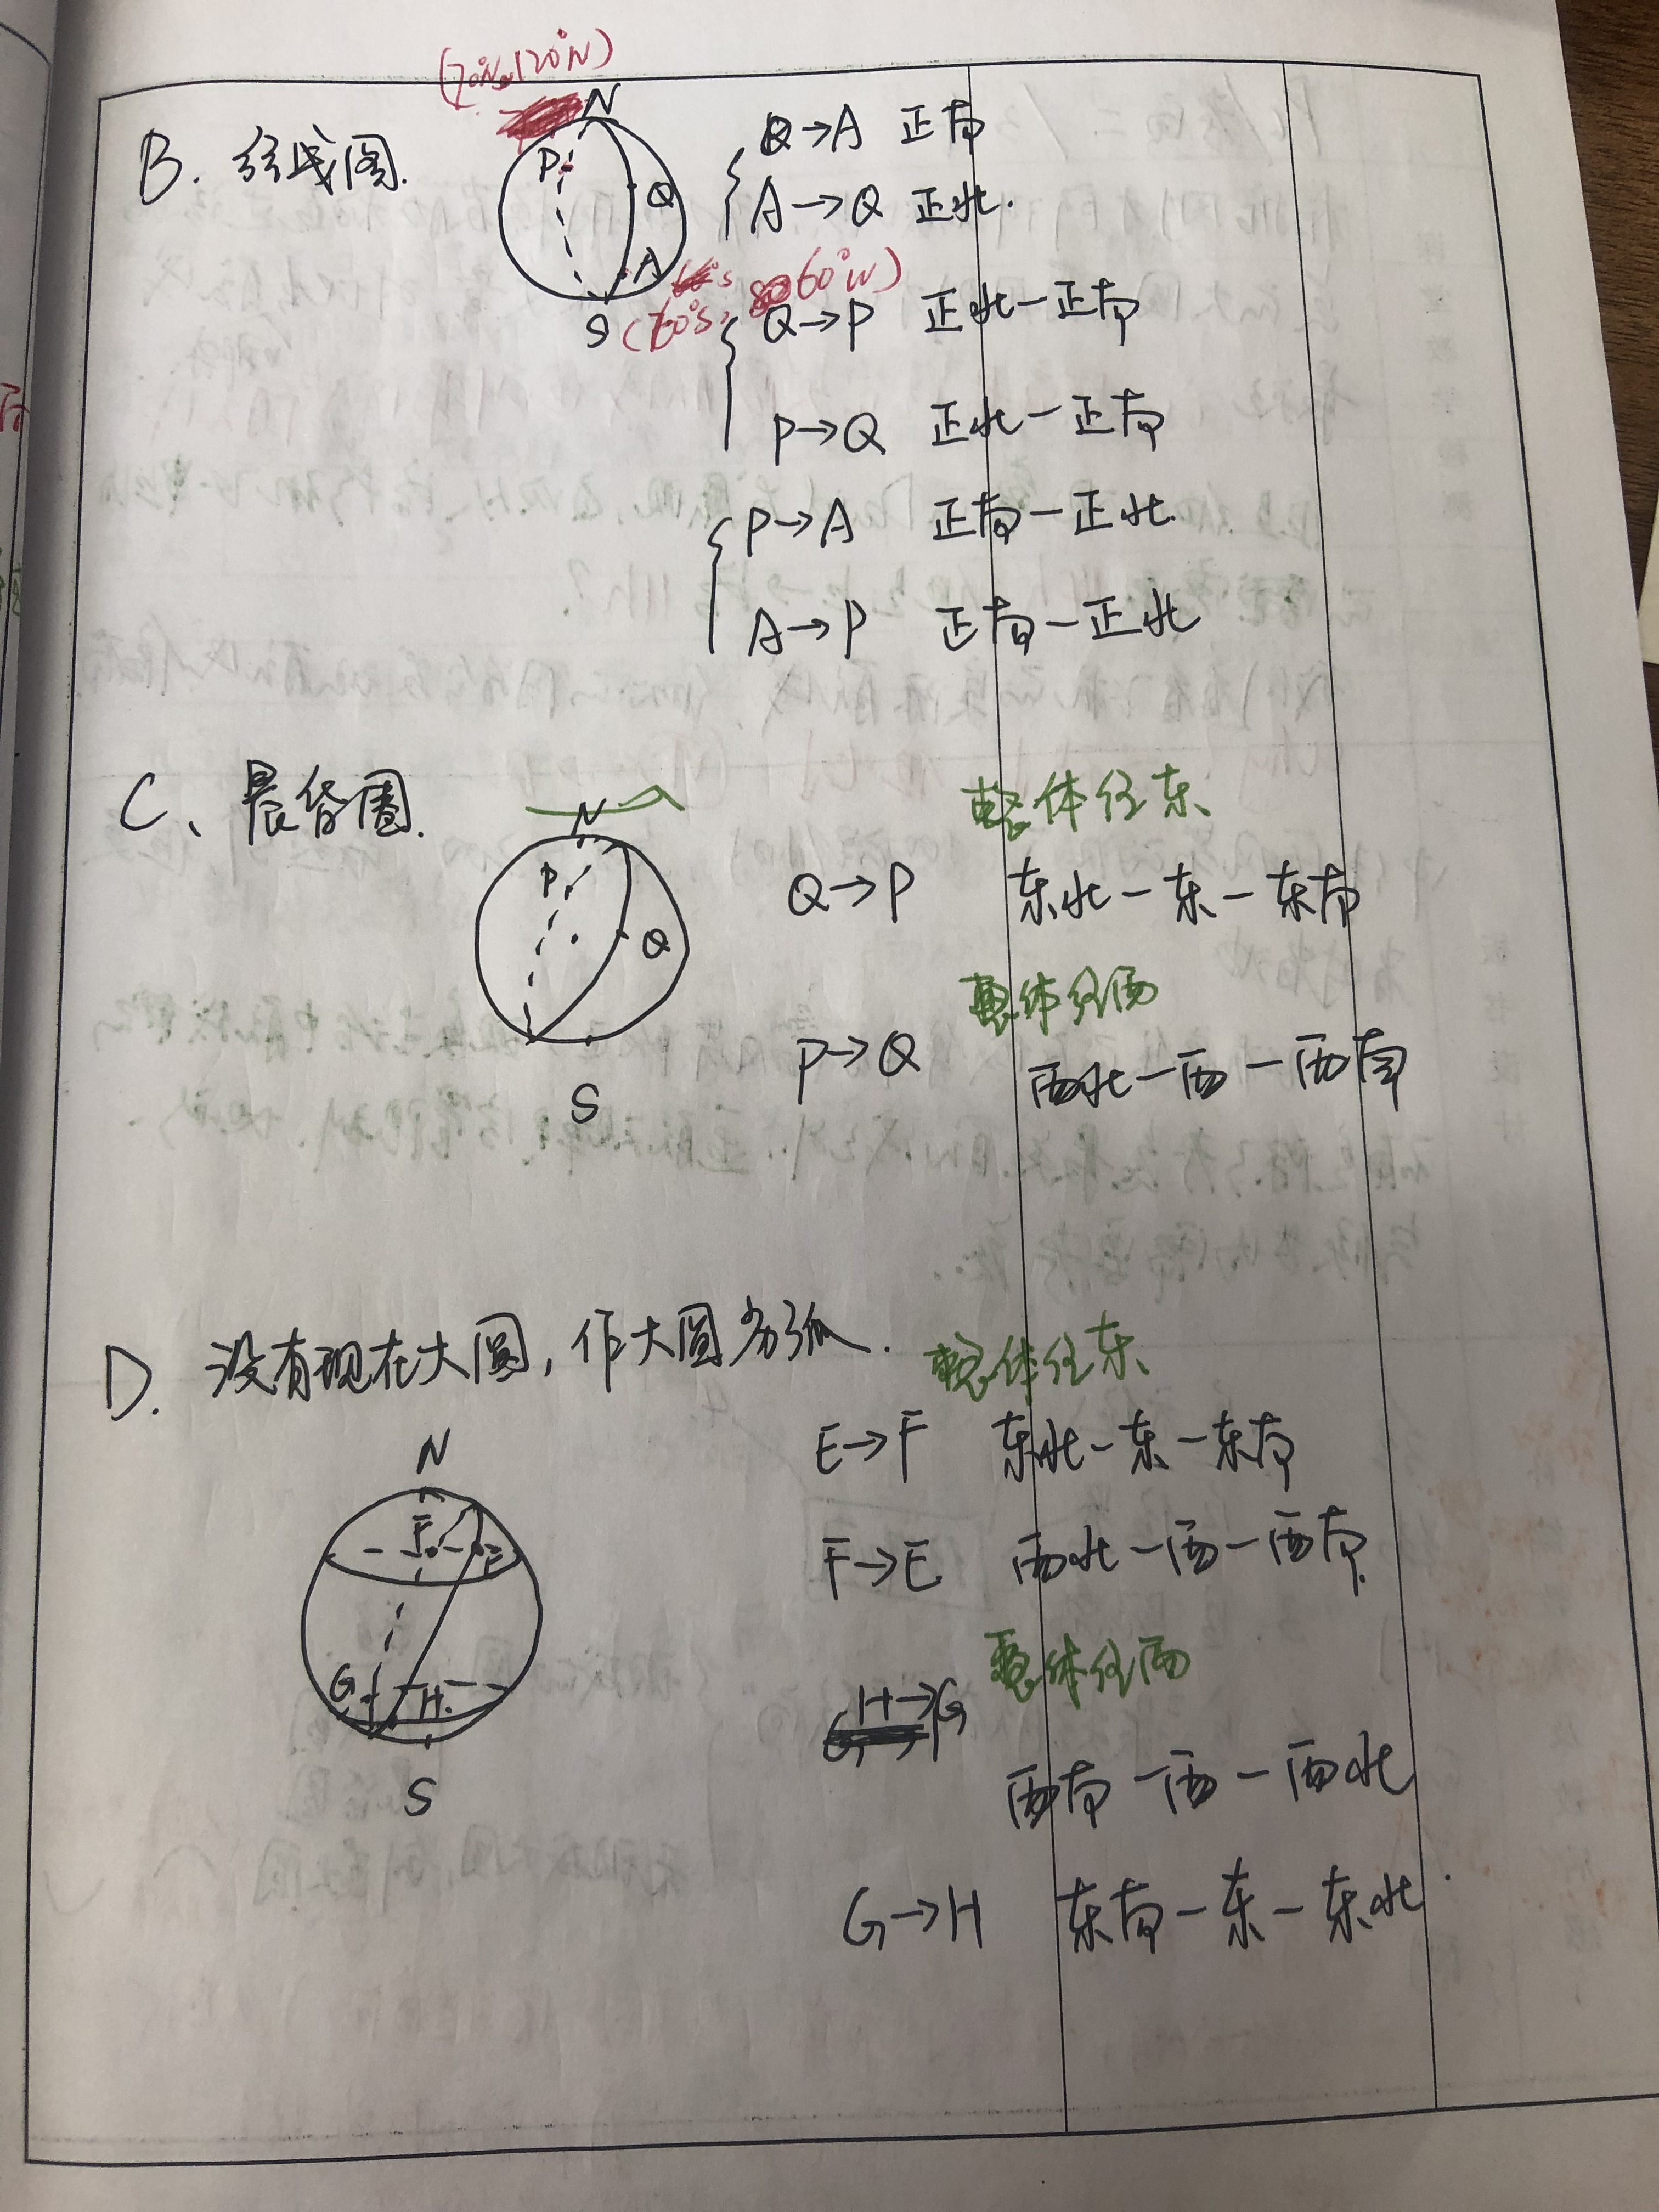 (70°N, 120°N)
B. 经线圈.
N
P
Q
A
S
(70°S, 60°W)
Q→A 正南
A→Q 正北.
Q→P 正北一正南
P→Q 正北一正南
P→A 正南一正北.
A→P 正南一正北
C、晨昏圈.
N
P
Q
S
整体往东
Q→P 东北一东一东南
整体往西
P→Q 西北一西一西南
D. 没有现在大圆, 作大圆劣弧.
N
F
E
G
H
S
整体往东
E→F 东北一东一东南
F→E 西北一西一西南
整体往西
H→G
西南一西一西北
G→H 东南一东一东北.